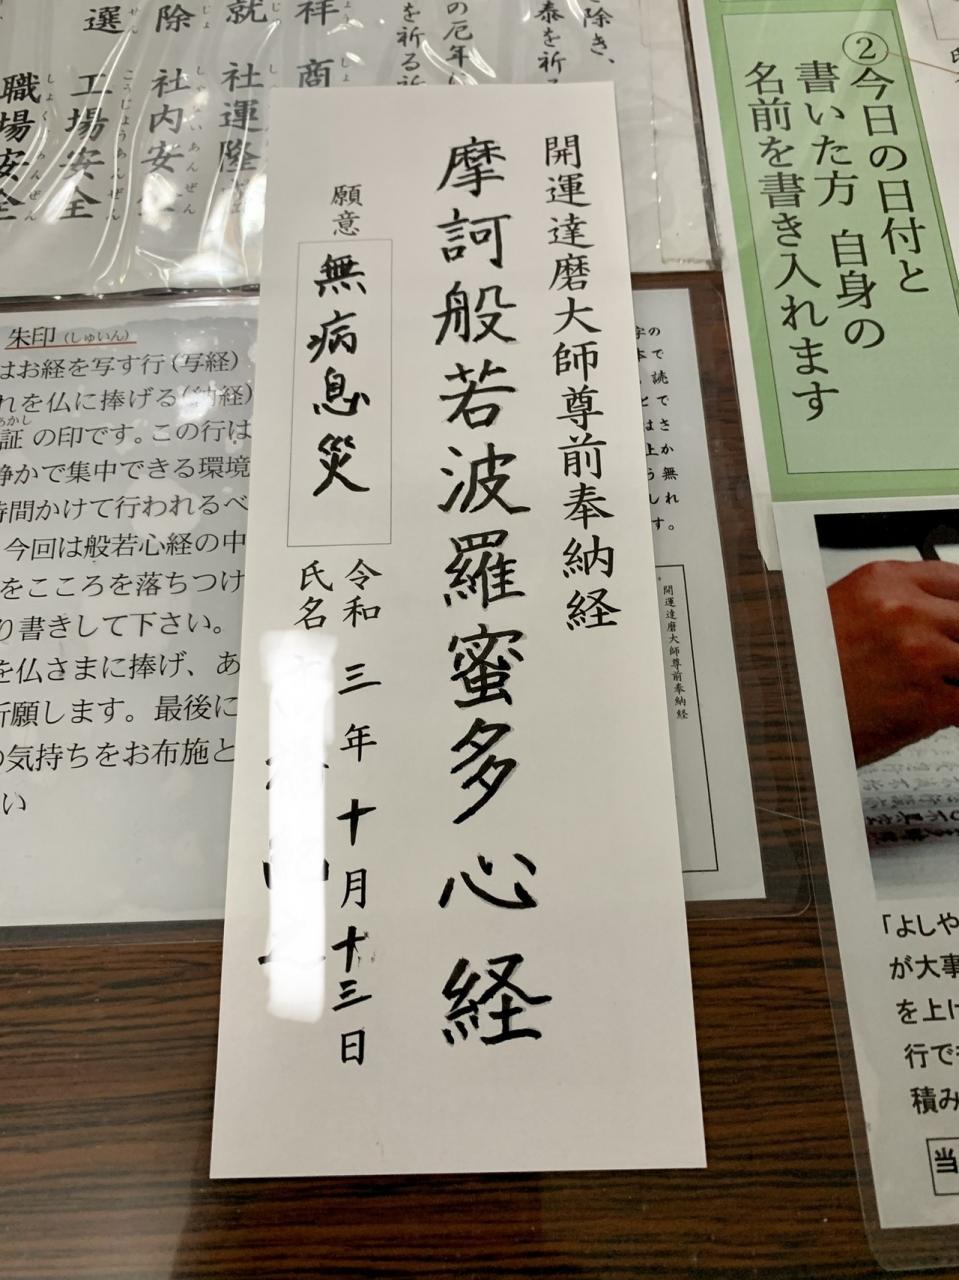 開運達磨大師尊前奉納経
摩訶般若波羅蜜多心経
願意
無病息災
令和三年十月十三日
氏名
②今日の日付と
書いた方 自身の
名前を書き入れます
を除き、
泰を祈る
の厄年
を祈る
祥 商
就 社運隆
除 社内安
選 工場安全
職場安全
朱印(しゅいん)
はお経を写す行(写経)
れを仏に捧げる(納経)
証の印です。この行は
静かで集中できる環境
時間かけて行われるべ
今回は般若心経の中
をこころを落ちつけ
り書きして下さい。
を仏さまに捧げ、あ
祈願します。最後に
の気持ちをお布施と
い
開運達磨大師尊前奉納経
「よしや
が大事
を上げ
行で
積み
当